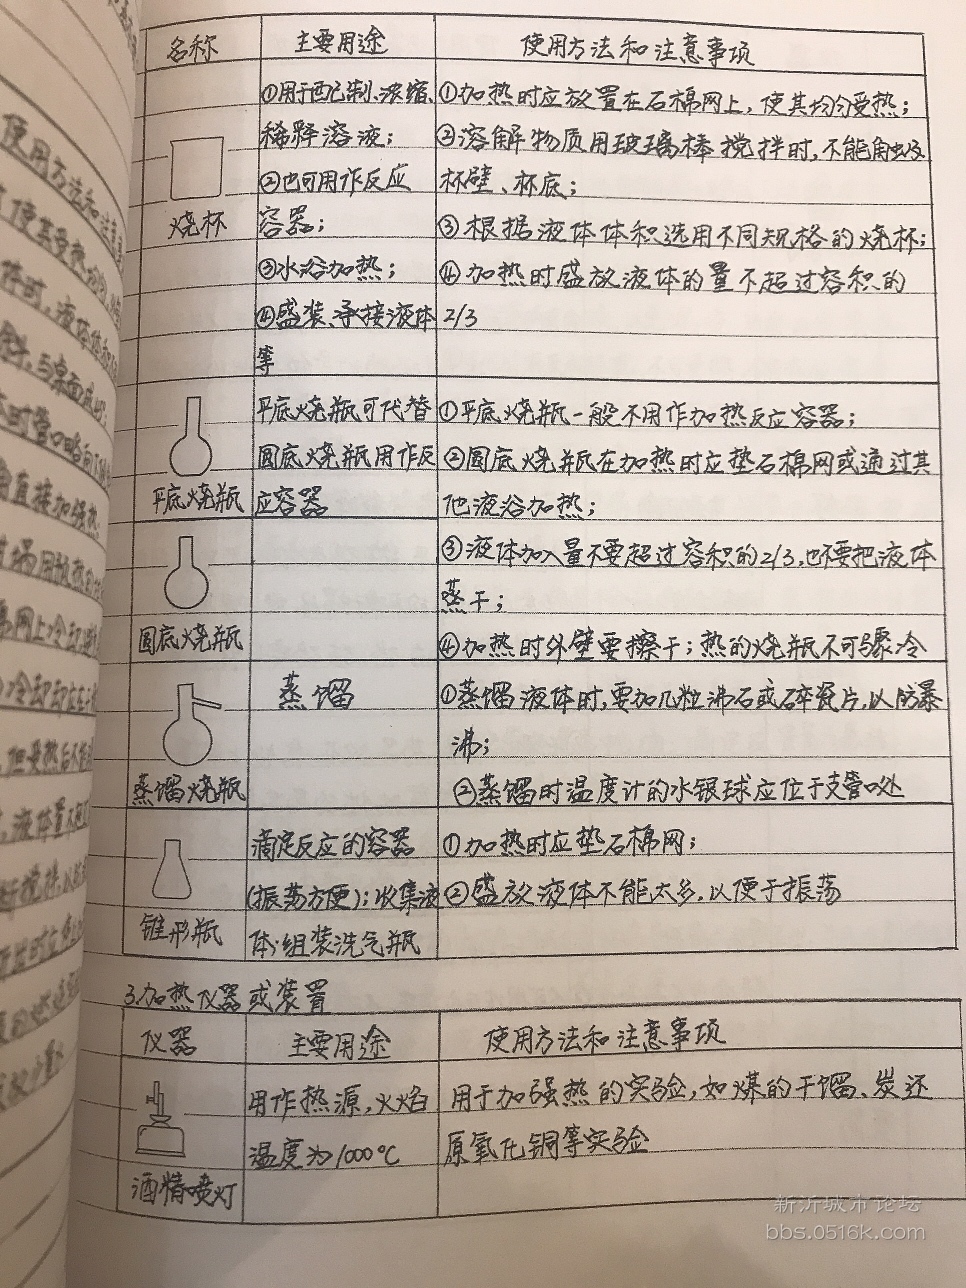 名称 主要用途 使用方法和注意事项
①用于配制、浓缩、 ①加热时应放置在石棉网上,使其均匀受热;
稀释溶液; ②溶解物质用玻璃棒搅拌时,不能触及
②也可用作反应 杯壁、杯底;
烧杯 容器; ③根据液体体积选用不同规格的烧杯;
③水浴加热; ④加热时盛放液体的量不超过容积的
④盛装、承接液体 2/3
等
平底烧瓶可代替 ①平底烧瓶一般不用作加热反应容器;
圆底烧瓶用作反 ②圆底烧瓶在加热时应垫石棉网或通过其
平底烧瓶 应容器 他液浴加热;
③液体加入量不要超过容积的2/3,也不要把液体
蒸干;
圆底烧瓶 ④加热时外壁要擦干;热的烧瓶不可骤冷
蒸馏 ①蒸馏液体时,要加几粒沸石或碎瓷片,以防暴
沸;
蒸馏烧瓶 ②蒸馏时温度计的水银球应位于支管口处
滴定反应的容器 ①加热时应垫石棉网;
(振荡方便);收集液 ②盛放液体不能太多,以便于振荡
锥形瓶 体;组装洗气瓶
3.加热仪器或装置
仪器 主要用途 使用方法和注意事项
用作热源,火焰 用于加强热的实验,如煤的干馏、炭还
温度为1000℃ 原氧化铜等实验
酒精喷灯
新沂城市论坛
bbs.0516k.com